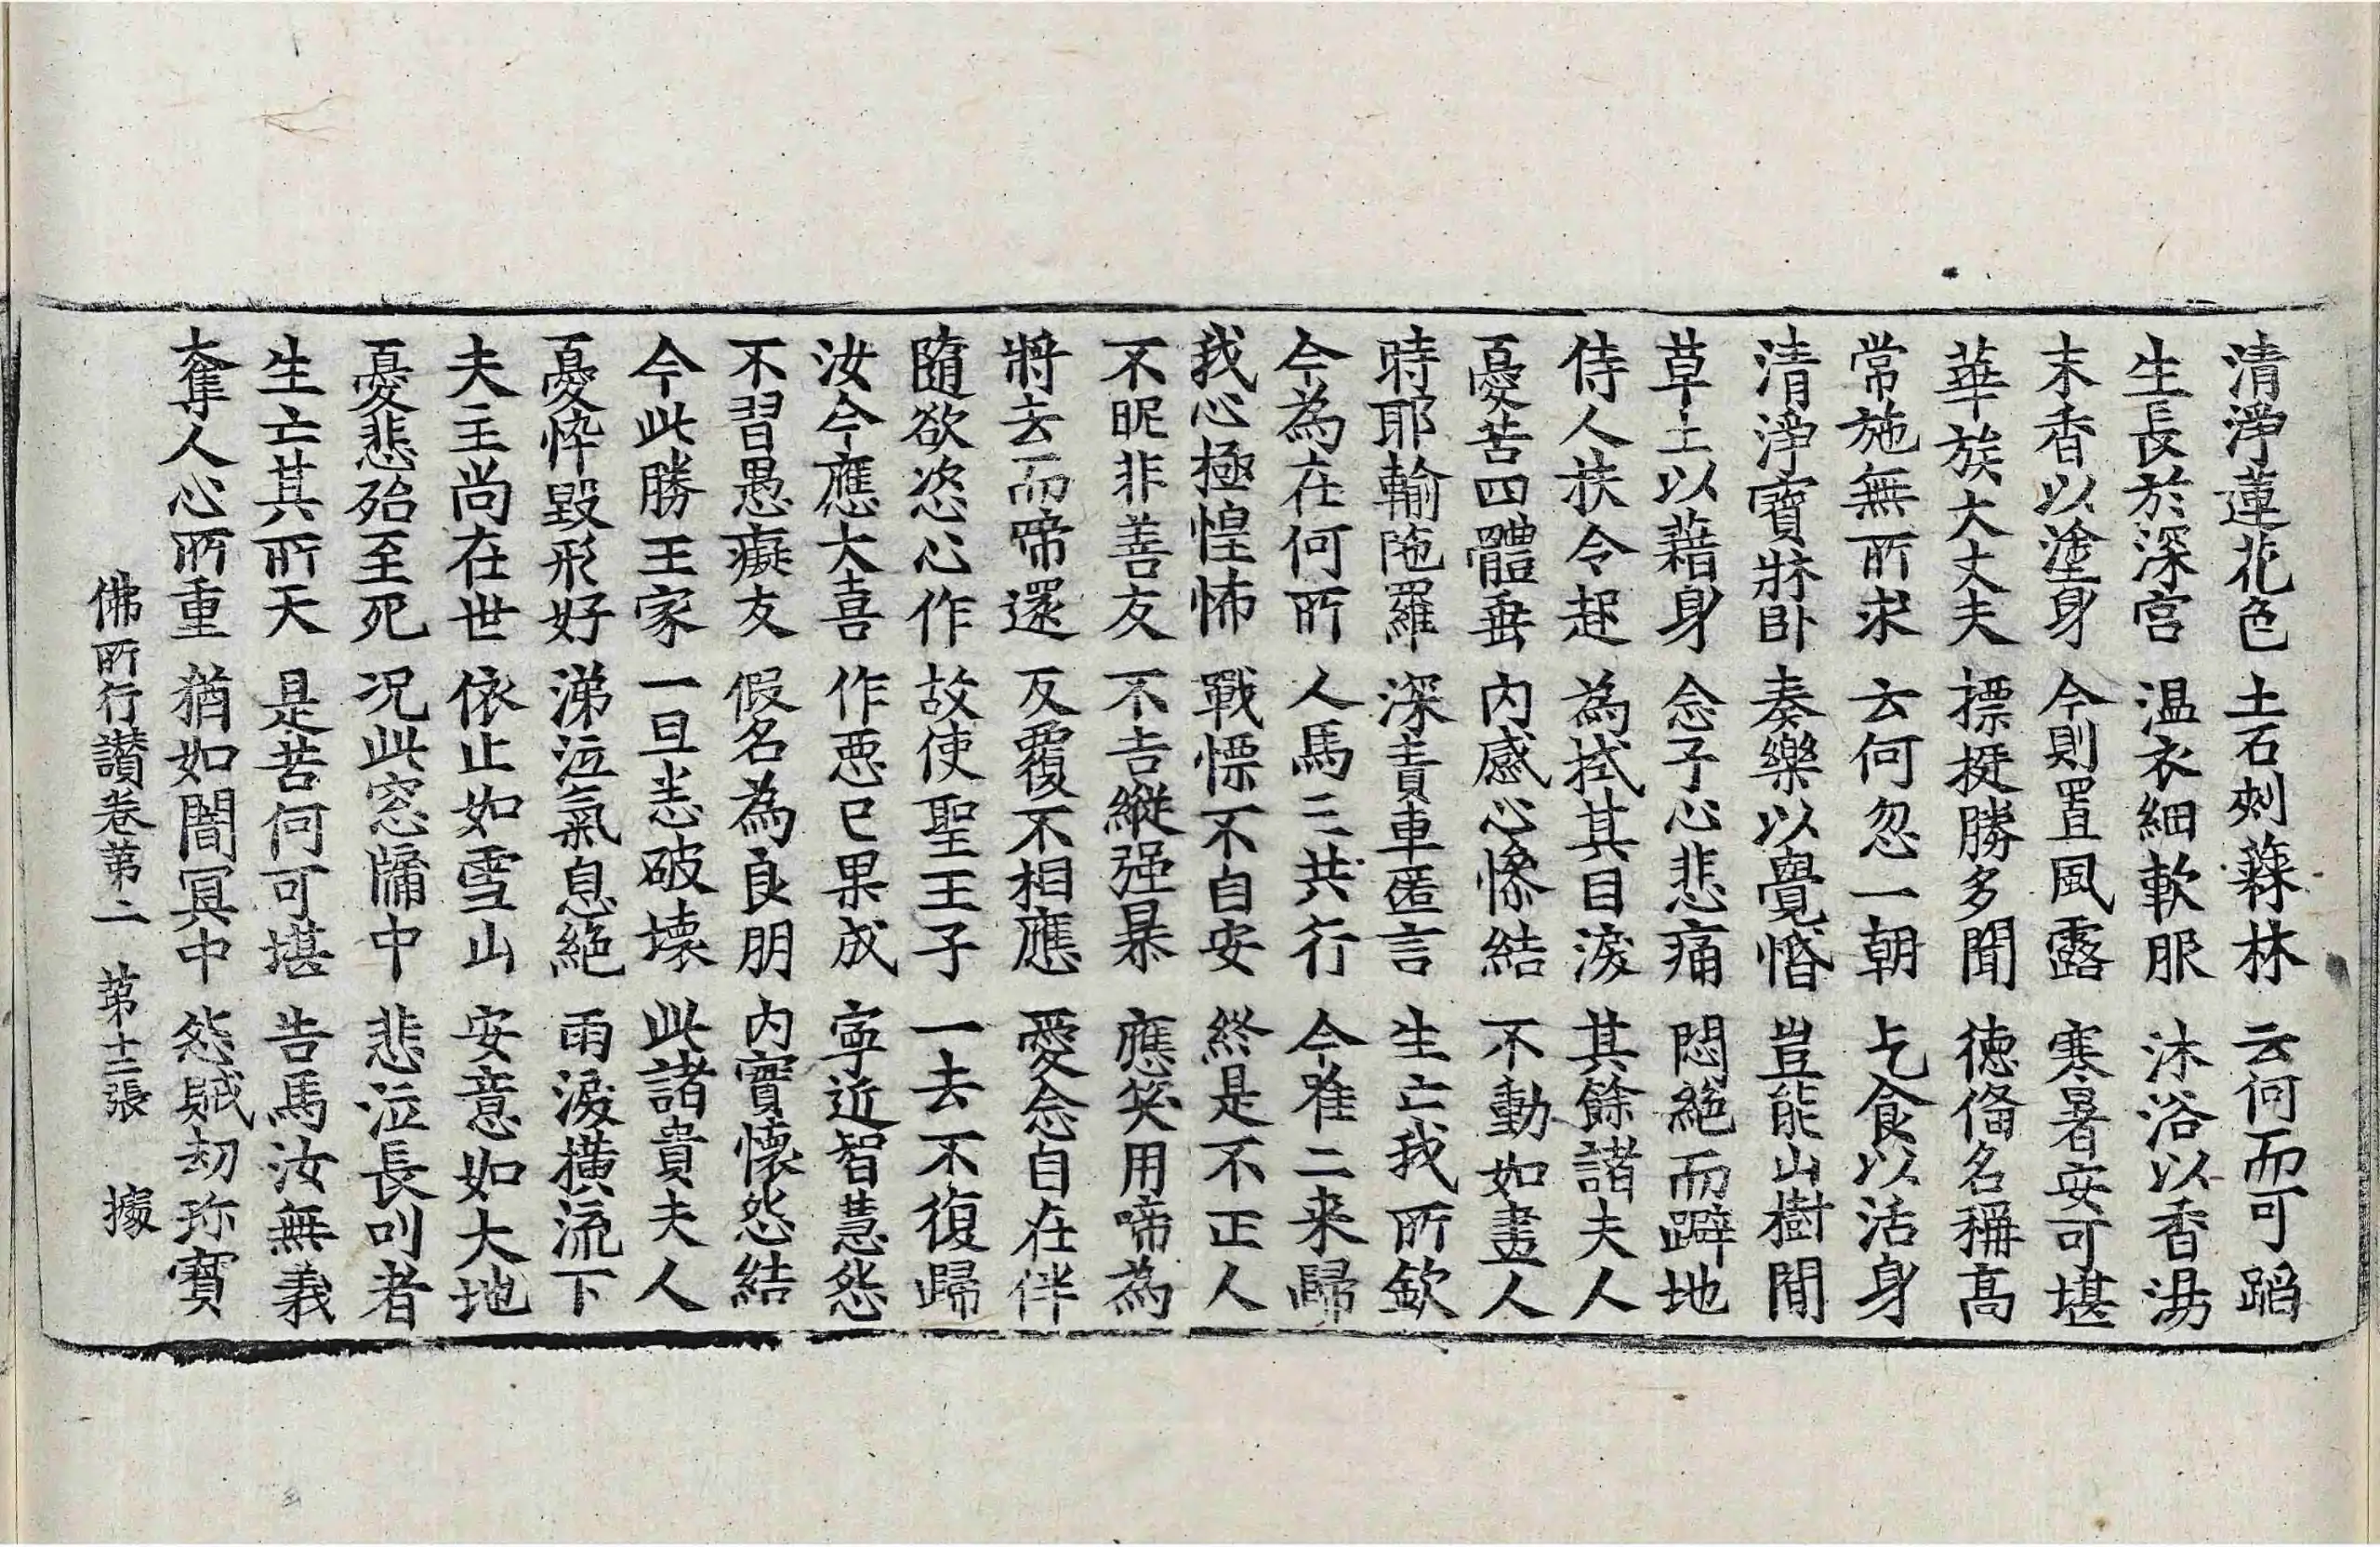 清淨蓮花色 土石刺蕀林 云何而可蹈
生長於深宮 温衣細軟服 沐浴以香湯
末香以塗身 今則置風露 寒暑安可堪
華族大丈夫 摽挺勝多聞 德俻名稱高
常施無所求 云何忽一朝 乞食以活身
清淨寶牀卧 奏樂以覺惛 豈能山樹間
草土以藉身 念子心悲痛 悶絶而躃地
侍人扶令起 為拭其目淚 其餘諸夫人
憂苦四體垂 内感心慘結 不動如畫人
時耶輸陁羅 深責車匿言 生亡我所欽
今為在何所 人馬三共行 今唯二来歸
我心極惶怖 戰慄不自安 終是不正人
不昵非善友 不吉縱强暴 應笑用啼為
將去而啼還 反覆不相應 愛念自在伴
隨欲恣心作 故使聖王子 一去不復歸
汝今應大喜 作惡已果成 寧近智慧怨
不習愚癡友 假名為良朋 内實懷怨結
今此勝王家 一旦悉破壞 此諸貴夫人
憂悴毀形好 涕泣氣息絶 雨淚横流下
夫主尚在世 依止如雪山 安意如大地
憂悲殆至死 况此窓牖中 悲泣長叫者
生亡其所天 是苦何可堪 告馬汝無義
奪人心所重 猶如闇冥中 怨賊劫珎寶
佛所行讃卷第二 第十二張 據